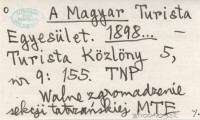 A Magyar Turista
Egyesület. 1898... –
Turista Közlöny 5,
nr 9: 155. TNP
Walne zgromadzenie
sekcji tatrzańskiej MTE.